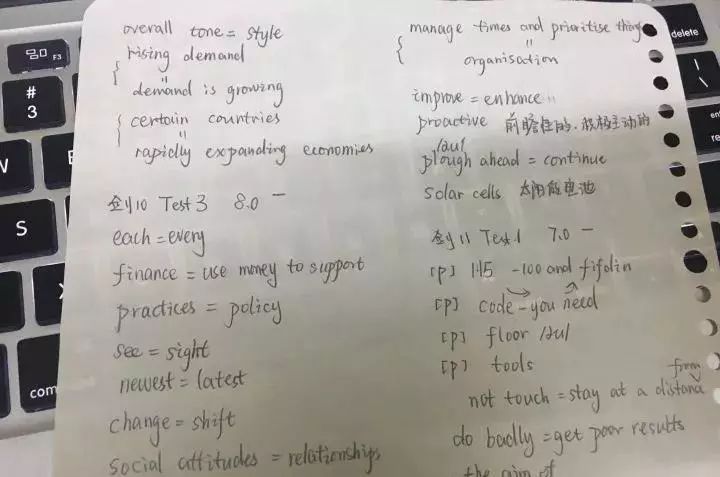 overall tone = style
rising demand
"
demand is growing
certain countries
"
rapidly expanding economies
剑10 Test 3 8.0 一
each = every
finance = use money to support
practices = policy
see = sight
newest = latest
change = shift
social attitudes = relationships
manage times and prioritise things
"
organisation
improve = enhance
proactive 前瞻性的、积极主动的
/au/
plough ahead = continue
solar cells 太阳能电池
剑11 Test 1 7.0 一
[p] 115 -100 and fifolin
[p] code - you need
[p] floor /au/
[p] tools
from
not touch = stay at a distance
do badly = get poor results
the aim of
#
3
F3
W
S
com
delete
\